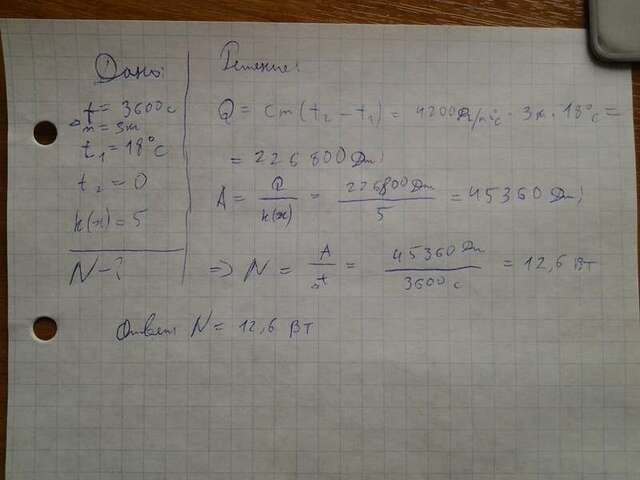 Дано:
t = 3600 с
m = 3 кг
t₁ = 18°C
t₂ = 0
k(x) = 5
N - ?
Решение:
Q = cm(t₂ - t₁) = 4200 Дж/кг°C · 3 кг · 18°C =
= 226800 Дж;
A = Q / k(x) = 226800 Дж / 5 = 45360 Дж;
=> N = A / △t = 45360 Дж / 3600 с = 12,6 Вт
Ответ: N = 12,6 Вт